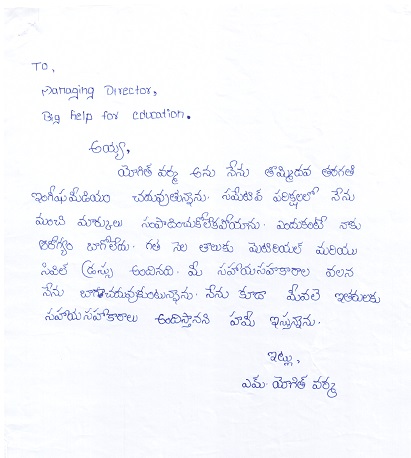 To,
Managing Director,
Big help for education.
అయ్య,
యోగిత్ వర్మ అను నేను తొమ్మిదవ తరగతి
ఇంగ్లీషుమీడియం చదువుతున్నాను. సమేటివ్ పరిక్షలలో నేను
మంచి మార్కులు సంపాదించుకోలేకపోయాను. ఎందుకంటే నాకు
ఆరోగ్యం బాగోలేదు. గత నెల తాలుకు మెటిరియల్ మరియు
సివిల్ డ్రస్సు అందినది. మీ సహాయసహకారాల వలన
నేను బాగాచదువుకుంటున్నాను. నేను కూడా మీవలె ఇతరులకు
సహాయసహకారాలు అందిస్తానని హామీ ఇస్తున్నాను.
ఇట్లు,
ఎమ్. యోగిత్ వర్మ